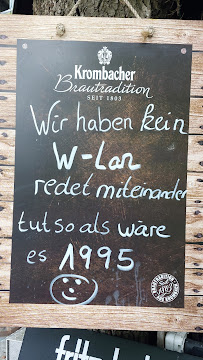 Krombacher
Brautradition
SEIT 1803
Wir haben kein
W-Lan
redet miteinander
tut so als wäre
es 1995
fritz